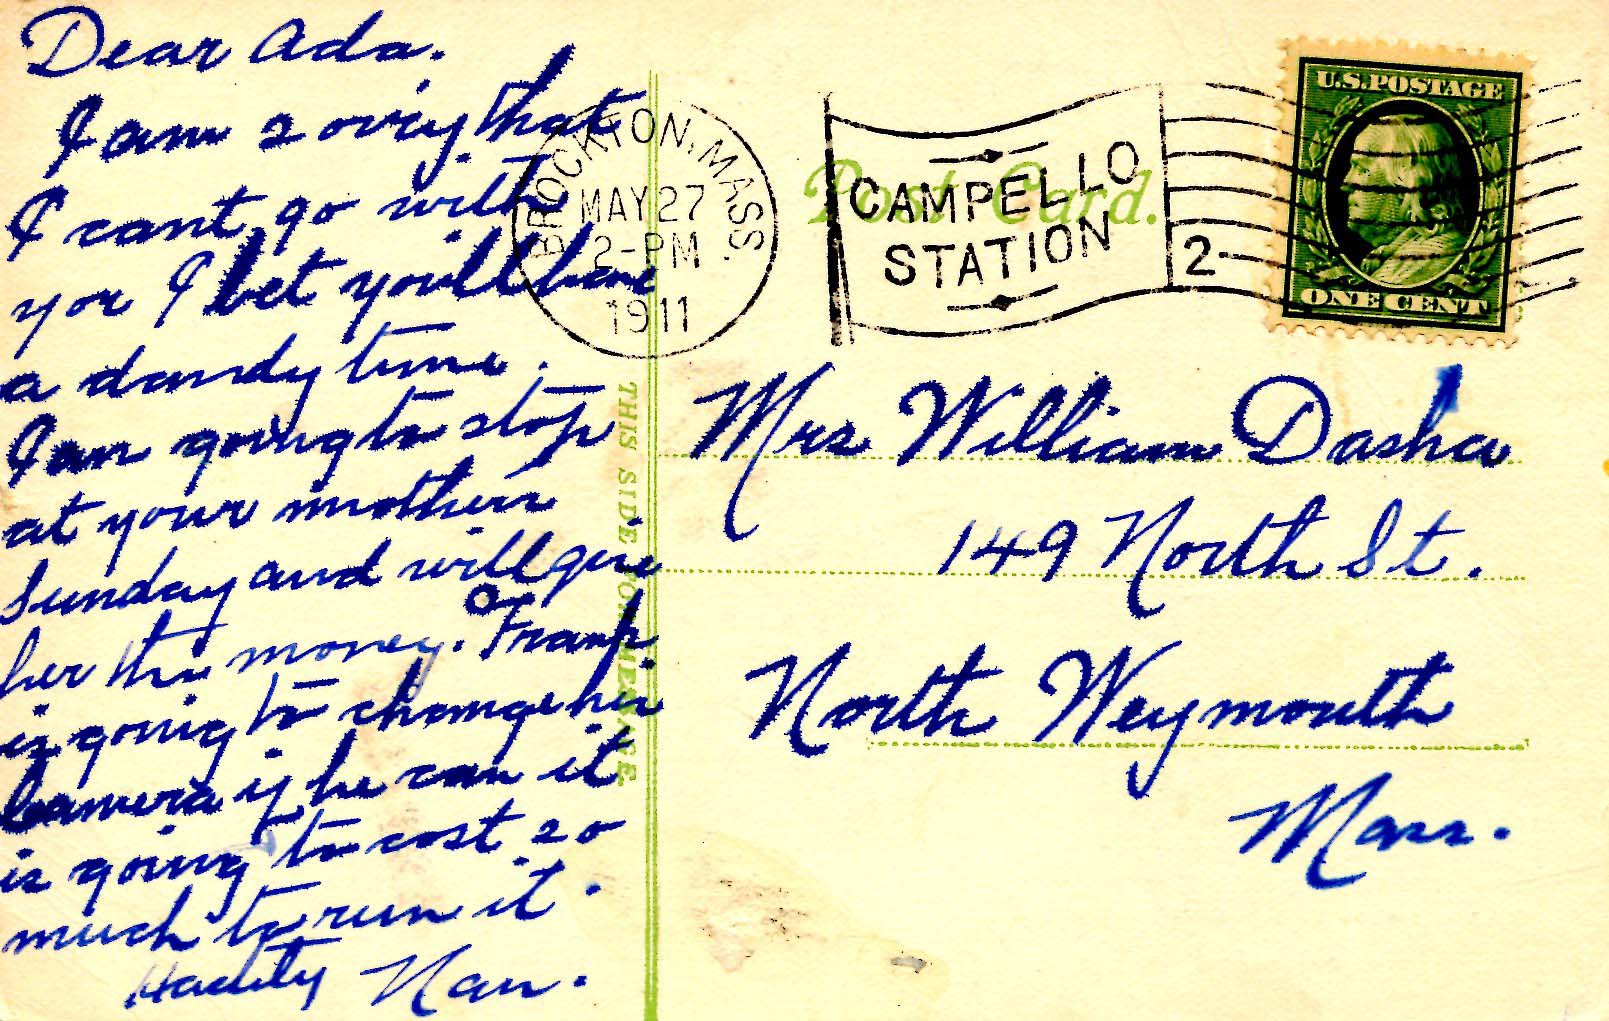 Dear Ada.
I am sorry that
I cant go with
you I bet you'll have
a dandy time.
I am going to stop
at your mothers
Sunday and will give
her the money. Frank
is going to change his
camera if he can it
is going to cost so
much to run it.
Nan.
BROCKTON, MASS.
MAY 27
2-PM
1911
Post Card.
CAMPELLO
STATION
2
U.S. POSTAGE
ONE CENT
THIS SIDE FOR MESSAGE
Mrs William Dasha
149 North St.
North Weymouth
Mass.